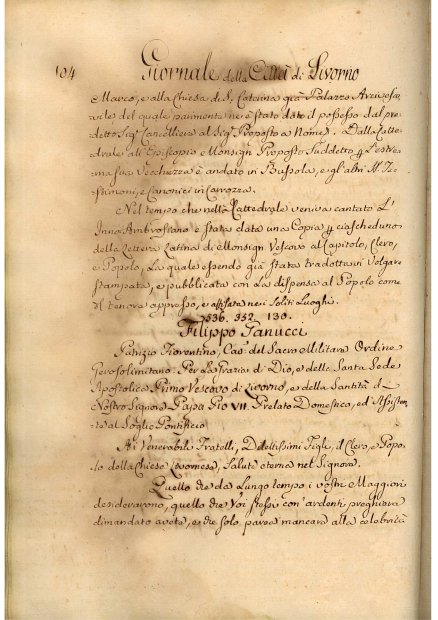 104 Giornale della Città di Livorno
Marco, e alla Chiesa di S. Caterina già Palazzo Arcives=
covile del quale parimente ne è stato dato il possesso dal pre
detto Sigr. Cancelliere al Sigr. Proposto a Nome s. Dalla Catte=
drale all'Episcopio e Monsignr. Proposto Suddetto per l'estre=
ma sua Vecchiezza è andato in Bussola, e gl'altri SS. Te=
stimoni, e Canonici in Carrozza.
Nel tempo che nella Cattedrale veniva cantato L'
Inno Ambrosiano è stata data una Copia per ciascheduno
della Lettera Latina di Monsignr. Vescovo al Capitolo, Clero,
e Popolo, La quale essendo già stata tradotta in Volgare
stampata, e pubblicata con la dispensa al Popolo come
il tenore appresso, e affissata nei Soliti Luoghi.
352. 130.
Filippo Ganucci
Patrizio Fiorentino, Cav. del Sacro Militare Ordine
Gerosolimitano: Per La Grazia di Dio, e della Santa Sede
Apostolica Primo Vescovo di Livorno, e della Santità di
Nostro Signore Papa Pio VII. Prelato Domestico, ed Assisten
te al Soglio Pontificio
Ai Venerabili Fratelli, Dilettissimi Figli, il Clero, e Popo=
lo della Chiesa Livornese, Salute eterna nel Signore.
Quello che da Lungo tempo i vostri Maggiori
desideravono, quello che Voi stessi con ardenti preghiere
dimandato avete, e che solo parea mancare alla celebrità